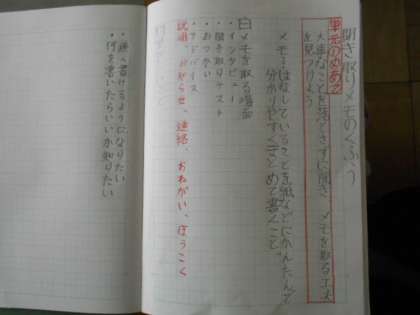 聞き取りメモのくふう
単元のめあて
大事なことを落とさずに聞き、メモを取るエ夫
を見つけよう
メモ…はなしていることを紙などにかんたんで
分かりやすくまとめて書くこと。
メモを取る場面
・インタビュー
・聞き取りテスト
・おつかい
・アドバイス
説明、お知らせ、連絡、おねがい、ほうこく
・速く書けるようになりたい
・何を書いたらいいか知りたい